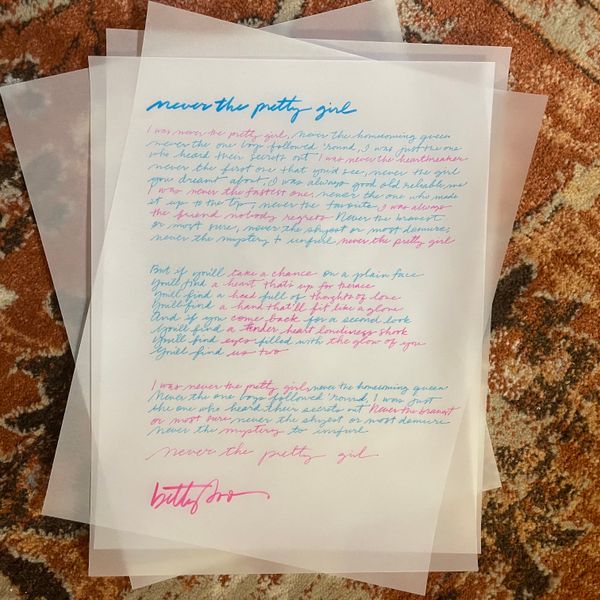 never the pretty girl
I was never the pretty girl, never the homecoming queen
never the one boys followed 'round, I was just the one
who heard their secrets out I was never the heartbreaker
never the first one that you'd see, never the girl
you dreamt about, I was always good old reliable me
I was never the fastest one, never the one who made
it up to the top, never the favorite, I was always
the friend nobody regrets Never the bravest
or most pure, never the shyest or most demure,
never the mystery to unfurl never the pretty girl
But if you'll take a chance on a plain face
You'll find a heart that's up for the race
You'll find a head full of thoughts of love
You'll find a hand that'll fit like a glove
And if you come back for a second look
You'll find a tender heart loneliness shook
You'll find eyes filled with the glow of you
You'll find us two
I was never the pretty girl, never the homecoming queen
Never the one boys followed 'round, I was just
the one who heard their secrets out Never the bravest
or most pure, never the shyest or most demure
never the mystery to unfurl
never the pretty girl
betty soo